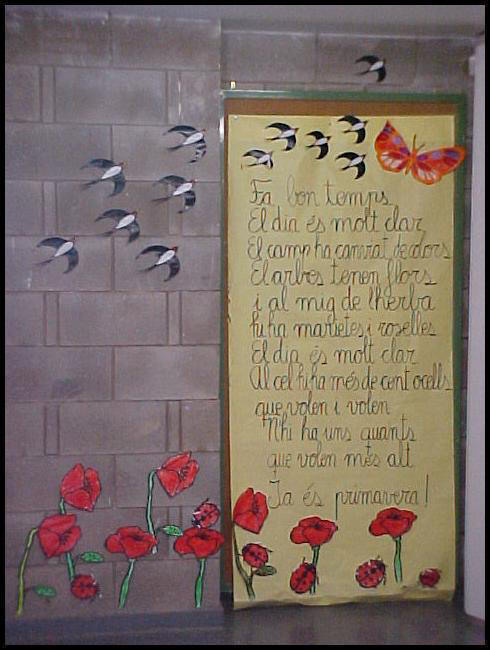 Fa bon temps
El dia és molt clar
El camp ha canviat de colors
El arbres tenen flors
i al mig de l'herba
hi ha marietes i roselles
El dia és molt clar
Al cel hi ha més de cent ocells
que volen i volen
N'hi ha uns quants
que volen més alt
Ja és primavera!